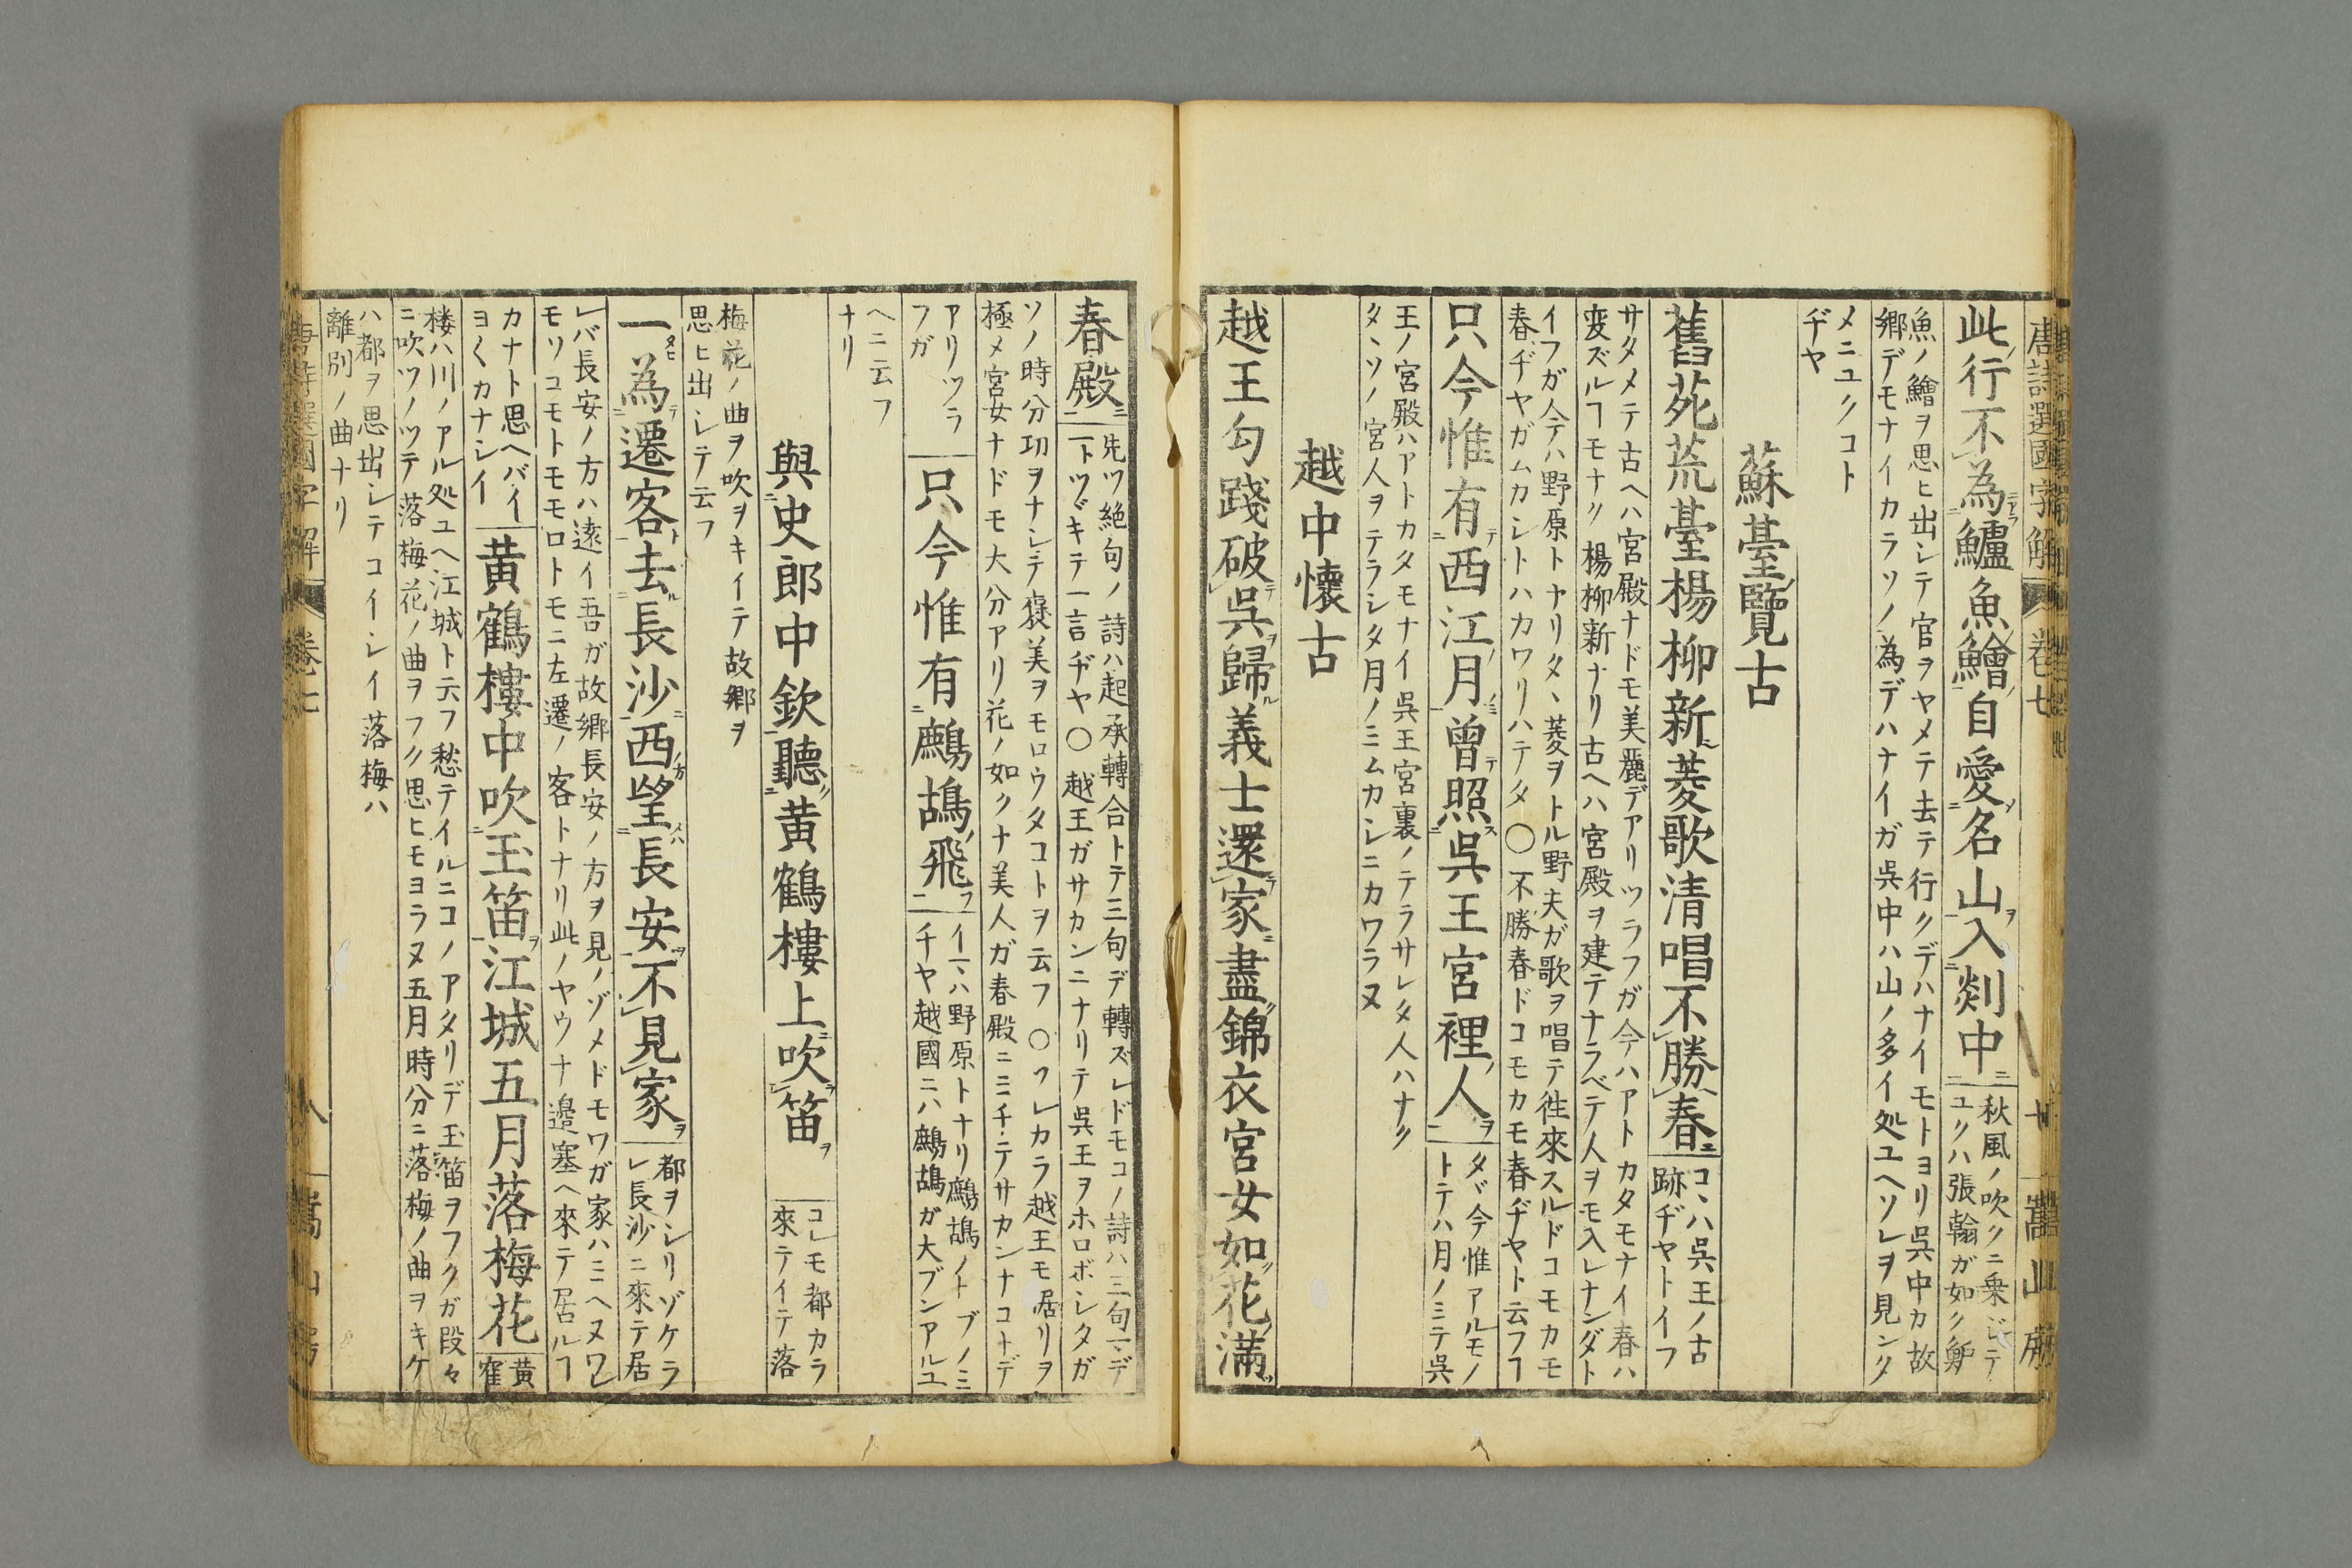 唐詩選國字解 卷七 嵩山房
此行不為鱸魚鱠自愛名山入剡中
秋風ノ吹クニ乗ジテ
ユクハ張翰ガ如ク鱸
魚ノ鱠ヲ思ヒ出シテ官ヲヤメテ去テ行クデハナイモトヨリ呉中カ故
郷デモナイカラソノ為デハナイガ呉中ハ山ノ多イ処ユヘソレヲ見ンタ
メニユクコト
ヂヤ
蘇臺覽古
舊苑荒臺楊柳新菱歌清唱不勝春
コヽハ呉王ノ古
跡ヂヤトイフ
サタメテ古ヘハ宮殿ナドモ美麗デアリツラフガ今ハアトカタモナイ春ハ
変ズルヿモナク楊柳新ナリ古ヘハ宮殿ヲ建テナラベテ人ヲモ入レナンダト
イフガ今テハ野原トナリタヽ菱ヲトル野夫ガ歌ヲ唱テ徃來スルドコモカモ
春ヂヤガムカシトハカワリハテタ○不勝春ドコモカモ春ヂヤト云フヿ
只今惟有西江月曾照呉王宮裡人
タヾ今惟アルモノ
トテハ月ノミテ呉
王ノ宮殿ハアトカタモナイ呉王宮裏ノテラサレタ人ハナク
タヽソノ宮人ヲテラシタ月ノミムカシニカワラヌ
越中懷古
越王勾踐破呉歸義士還家盡錦衣宮女如花滿
春殿
先ツ絶句ノ詩ハ起承轉合トテ三句デ轉ズレドモコノ詩ハ三句マデ
一トツヾキテ一言ヂヤ○越王ガサカンニナリテ呉王ヲホロボシタガ
ソノ時分功ヲナシテ襃美ヲモロウタコトヲ云フ○ワレカラ越王モ居リヲ
極メ宮女ナドモ大分アリ花ノ如クナ美人ガ春殿ニミチテサカンナコトデ
アリツラ
フガ
只今惟有鷓鴣飛
イマハ野原トナリ鷓鴣ノトブノミ
チヤ越國ニハ鷓鴣ガ大ブンアルユ
ヘニ云フ
ナリ
與史郎中欽聽黄鶴樓上吹笛
コレモ都カラ
來テイテ落
梅花ノ曲ヲ吹ヲキイテ故郷ヲ
思ヒ出シテ云フ
一為遷客去長沙西望長安不見家
都ヲシリゾケラ
レ長沙ニ來テ居
レバ長安ノ方ハ遠イ吾ガ故郷長安ノ方ヲ見ノゾメドモワガ家ハミヘヌワレ
モソコモトモモロトモニ左遷ノ客トナリ此ノヤウナ邉塞ヘ來テ居ルヿ
カナト思ヘバイ
ヨ〱カナシイ
黄鶴樓中吹玉笛江城五月落梅花
黄
寉
楼ハ川ノアル処ユヘ江城ト云フ愁テイルニコノアタリデ玉笛ヲフクガ段々
ニ吹ツノツテ落梅花ノ曲ヲフク思ヒモヨラヌ五月時分ニ落梅ノ曲ヲキケ
ハ都ヲ思出シテコイシイ落梅ハ
離別ノ曲ナリ
唐詩選國字解 卷七 八 嵩山房